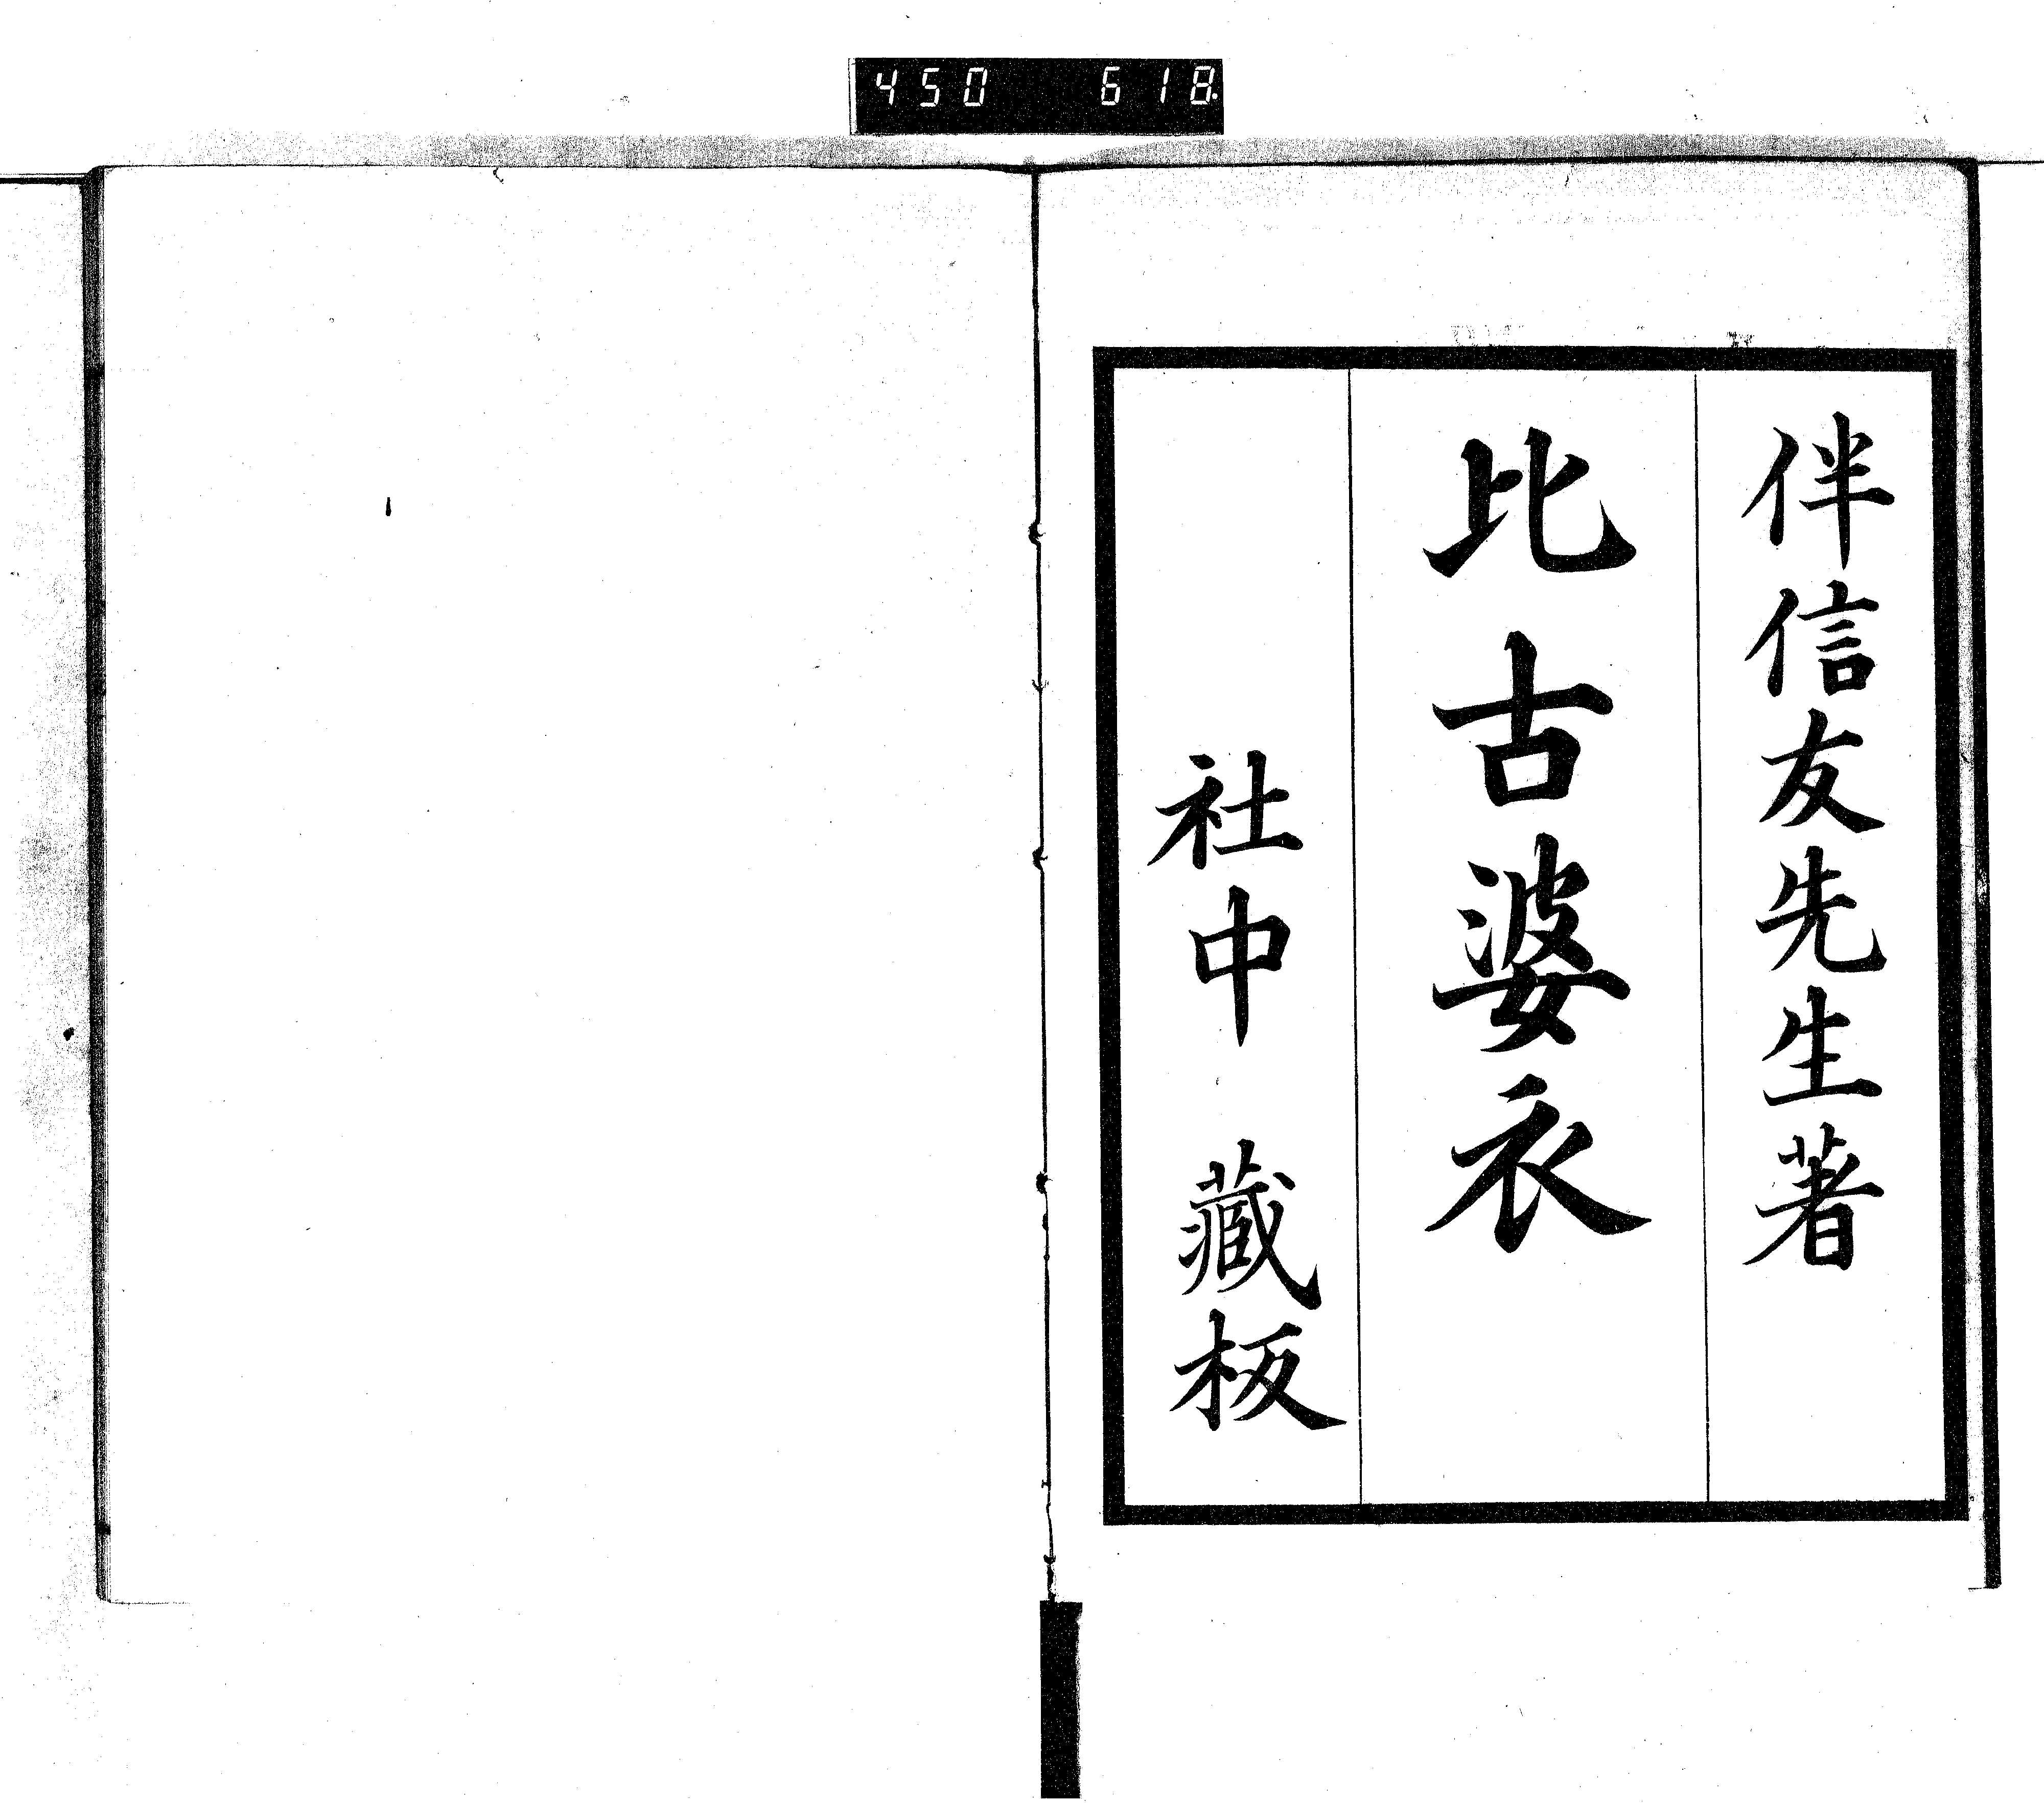 450 618.
伴信友先生著
比古婆衣
社中 藏板